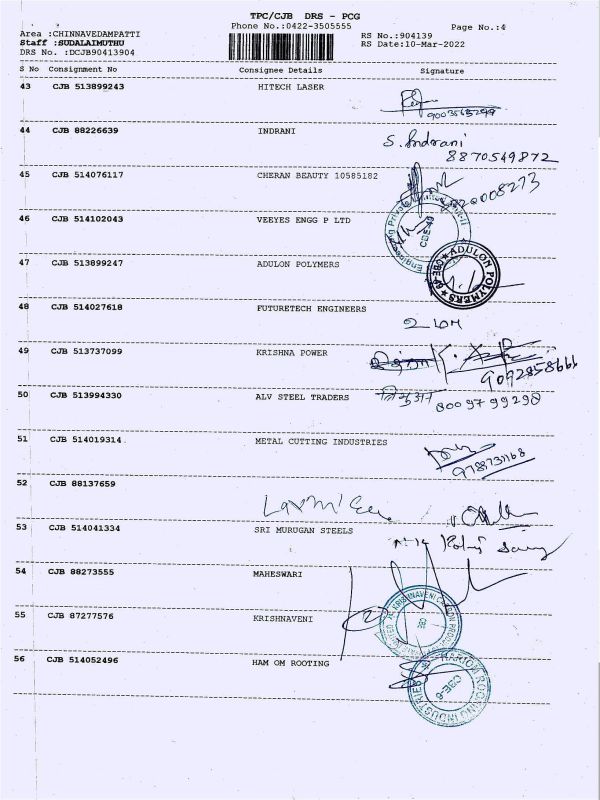 TPC/CJB DRS - PCG
Phone No.:0422-3505555
Page No.:4
Area :CHINNAVEDAMPATTI
RS No.:904139
Staff :SUDALAIMUTHU
RS Date:10-Mar-2022
DRS No. :DCJB90413904
S No Consignment No Consignee Details Signature
43 CJB 513899243 HITECH LASER
9003565299
44 CJB 88226639 INDRANI
S. Indrani
8870549872
45 CJB 514076117 CHERAN BEAUTY 10585182
46 CJB 514102043 VEEYES ENGG P LTD
47 CJB 513899247 ADULON POLYMERS
ADULON POLYMERS
48 CJB 514027618 FUTURETECH ENGINEERS
49 CJB 513737099 KRISHNA POWER
9092858666
50 CJB 513994330 ALV STEEL TRADERS
8009799298
51 CJB 514019314 METAL CUTTING INDUSTRIES
9787731168
52 CJB 88137659
53 CJB 514041334 SRI MURUGAN STEELS
54 CJB 88273555 MAHESWARI
55 CJB 87277576 KRISHNAVENI
56 CJB 514052496 HAM OM ROOTING